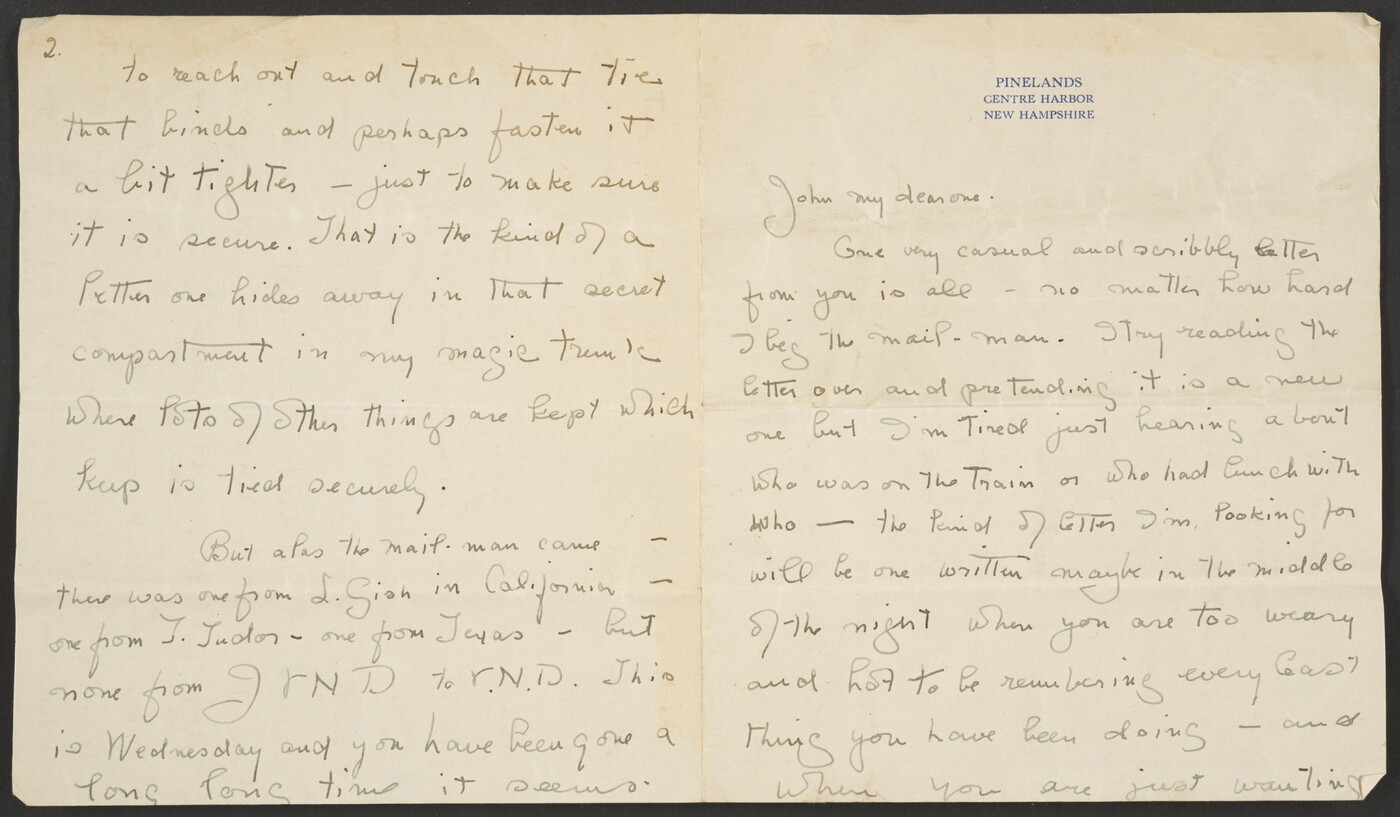 PINELANDS
CENTRE HARBOR
NEW HAMPSHIRE
John my dearone.
One very casual and scribbly letter
from you is all - no matter how hard
I beg the mail-man. I try reading the
letter over and pretending it is a new
one but I'm tired just hearing about
who was on the train or who had lunch with
who — the kind of letter I'm looking for
will be one written maybe in the middle
of the night when you are too weary
and hot to be rembering every least
thing you have been doing - and
when you are just wanting
2.
to reach out and touch that tie
that binds and perhaps fasten it
a bit tighter - just to make sure
it is secure. That is the kind of a
letter one hides away in that secret
compartment in my magic trunk
where lots of other things are kept which
keep is tied securely.
But alas the mail-man came -
there was one from L. Gish in California -
one from T. Tudor - one from Texas - but
none from J V N D to V.N.D. This
is Wednesday and you have been gone a
long long time it seems.